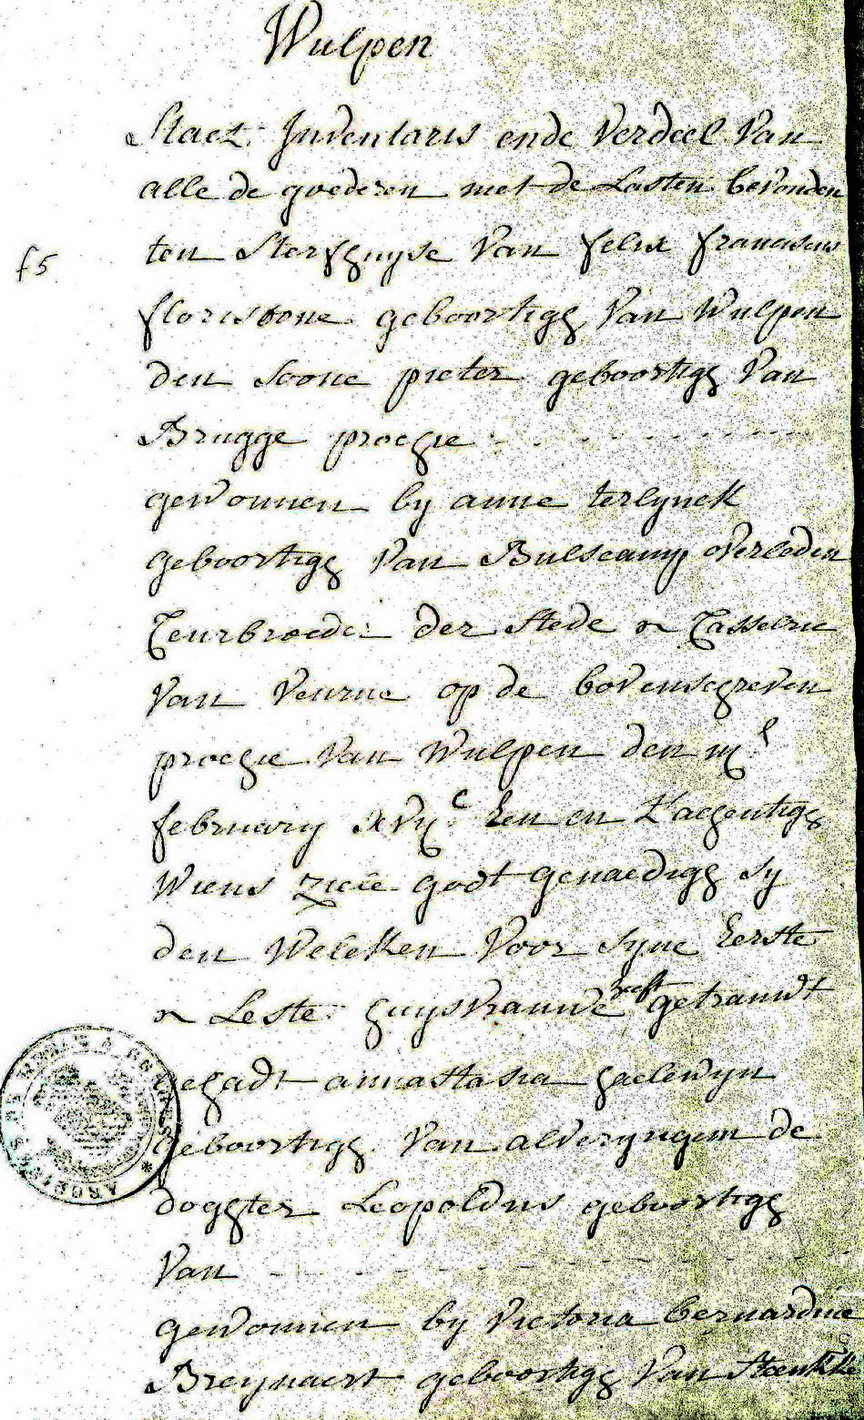 Wulpen
Staet Inventaris ende Verdeel Van
alle de goederen met de Lasten bevonden
f5
ten sterfhuyse Van felix franciscus
florisoone geboortigh Van Wulpen
den soone pieter geboortigh Van
Brugge prochie
gewonnen by anne terlynck
geboortigh Van Bulscamp overleden
Ceurbroeder der stede en Casselrie
Van Veurne op de bovenschreven
prochie Van Wulpen den
february xvijc Een en t'achentigh
Wiens ziele godt genaedigh sy
den Welcken Voor syne Eerste
en Leste huysvrauwe heeft getrauwt
gehadt annastasia haelewyn
geboortigh Van alveryngem de
doghter Leopoldus geboortigh
Van
gewonnen by Victoria bernardine
Breynaert geboortigh Van